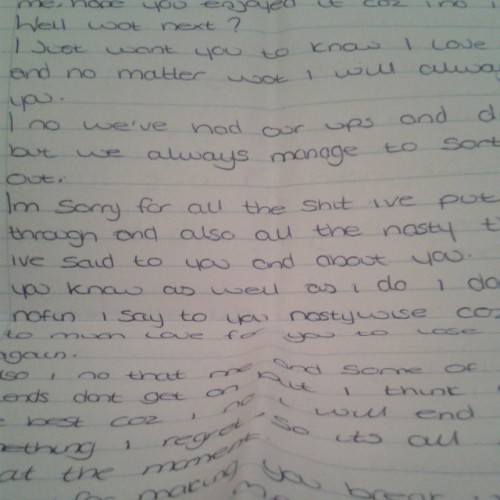 me, hope you enjoyed it coz i no i
Well wot next?
I Just want you to know I Love
and no matter wot I will alwa
you.
I no we've had our ups and d
but we always manage to sort
out.
Im Sorry for all the Shit ive put
through and also all the nasty t
ive said to you and about you.
you know as well as i do I do
nofin i say to you nastywise coz
to much love for you to lose
again.
lso i no that me and some of
ends dont get on but I think
e best coz i no i will end
mething I regret. So its all
at the moment
for making you break